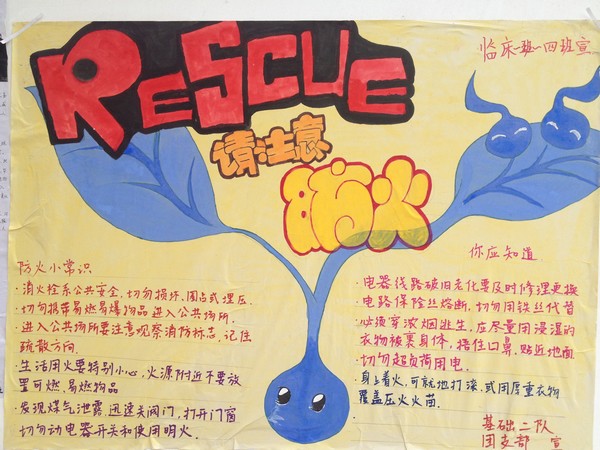 RESCUE
临床一班-四班宣
请注意
防火
防火小常识
·消火栓系公共安全,切勿损坏,圈占或埋压.
·切勿携带易燃易爆物品进入公共场所.
·进入公共场所要注意观察消防标志,记住
疏散方向.
·生活用火要特别小心,火源附近不要放
置可燃、易燃物品
·发现煤气泄露,迅速关阀门,打开门窗
切勿动电器开关和使用明火.
你应知道
·电器线路破旧老化要及时修理更换
·电路保险丝熔断,切勿用铁丝代替
·必须穿浓烟逃生,应尽量用浸湿的
衣物被裹身体,捂住口鼻,贴近地面
·切勿超负荷用电.
·身上着火,可就地打滚,或用厚重衣物
覆盖压火火苗.
基础二队
团支部 宣